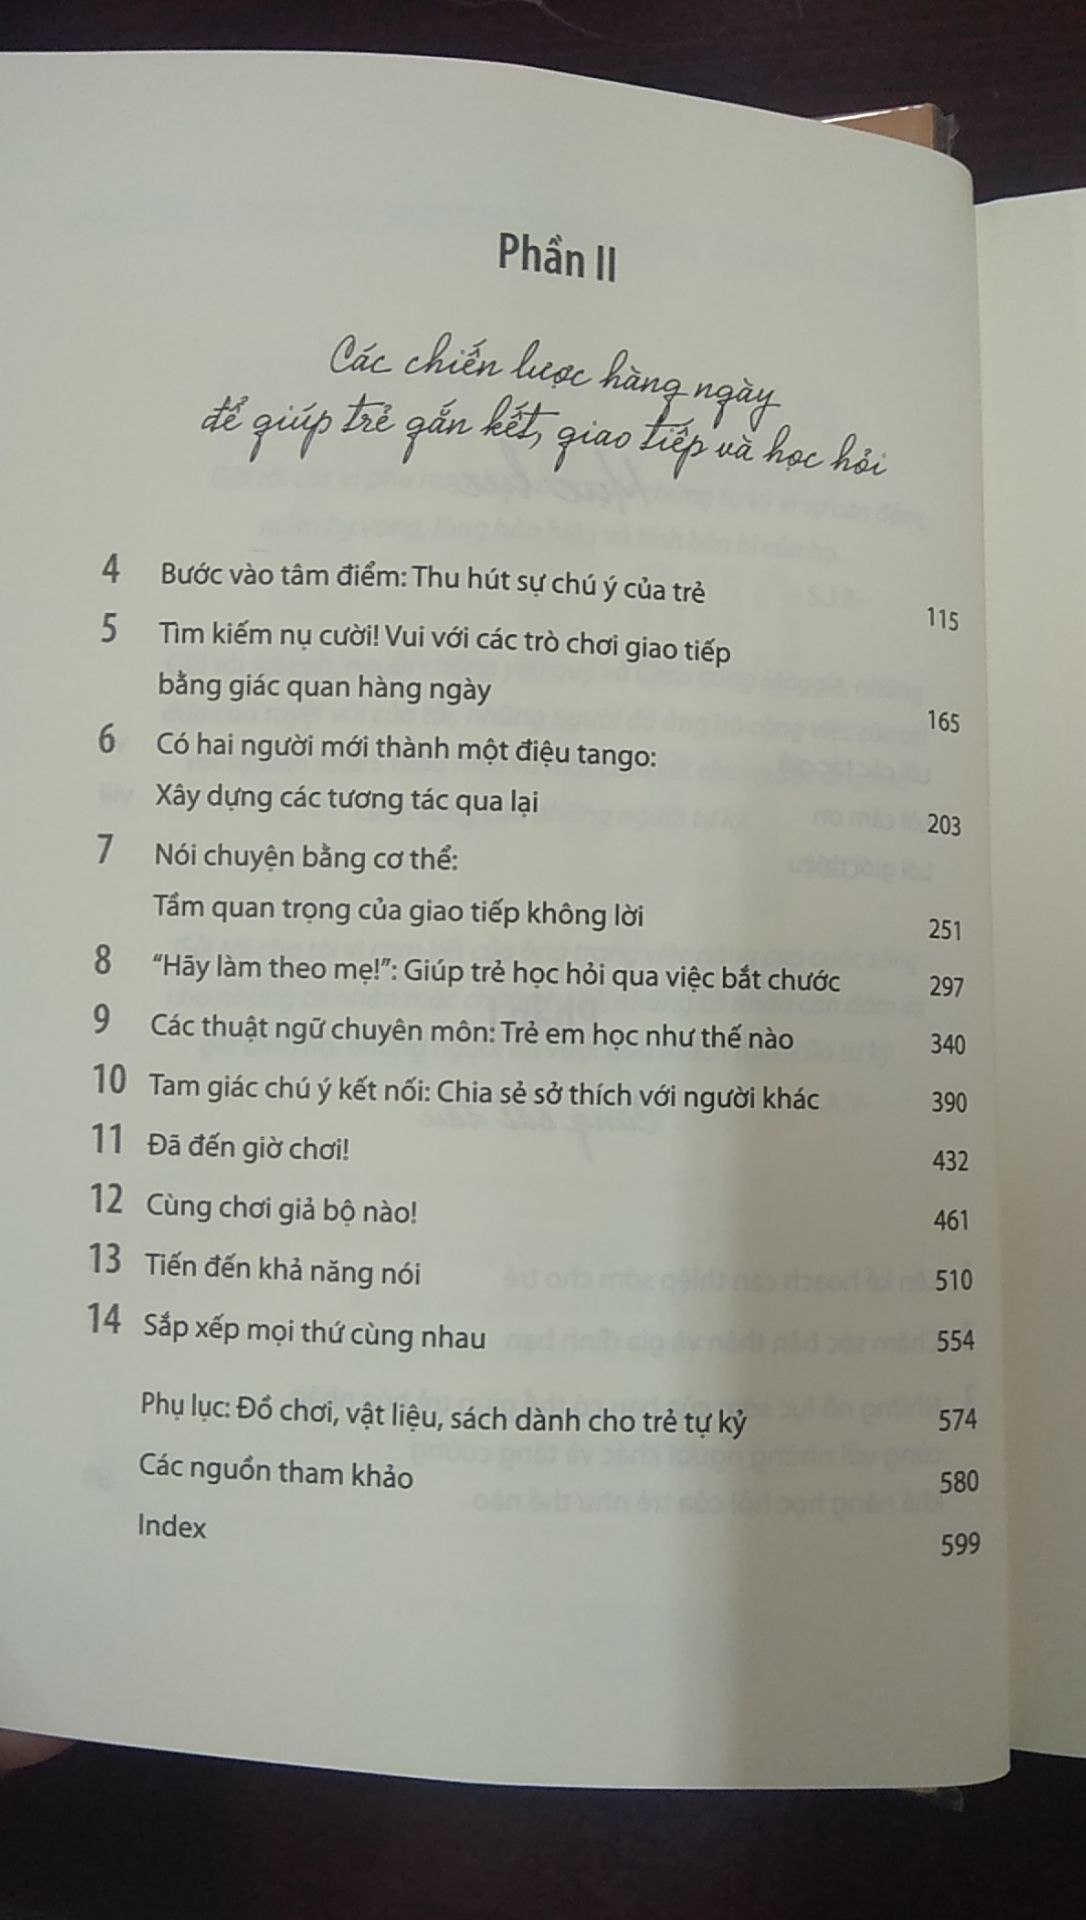 Phần II
Các chiến lược hàng ngày
để giúp trẻ gắn kết, giao tiếp và học hỏi
4 Bước vào tâm điểm: Thu hút sự chú ý của trẻ 115
5 Tìm kiếm nụ cười! Vui với các trò chơi giao tiếp
bằng giác quan hàng ngày 165
6 Có hai người mới thành một điệu tango:
Xây dựng các tương tác qua lại 203
7 Nói chuyện bằng cơ thể:
Tầm quan trọng của giao tiếp không lời 251
8 “Hãy làm theo mẹ!”: Giúp trẻ học hỏi qua việc bắt chước 297
9 Các thuật ngữ chuyên môn: Trẻ em học như thế nào 340
10 Tam giác chú ý kết nối: Chia sẻ sở thích với người khác 390
11 Đã đến giờ chơi! 432
12 Cùng chơi giả bộ nào! 461
13 Tiến đến khả năng nói 510
14 Sắp xếp mọi thứ cùng nhau 554
Phụ lục: Đồ chơi, vật liệu, sách dành cho trẻ tự kỷ 574
Các nguồn tham khảo 580
Index 599